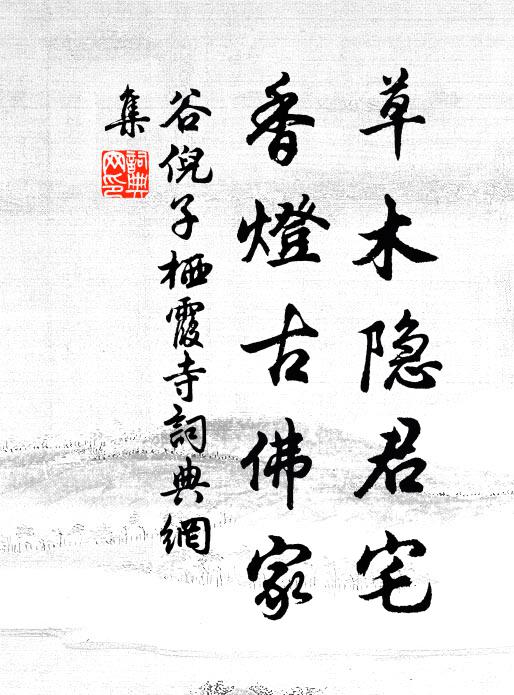 草木隐君宅
香燈古佛家
谷倪子栖霞寺詞典網
集
詞典网印